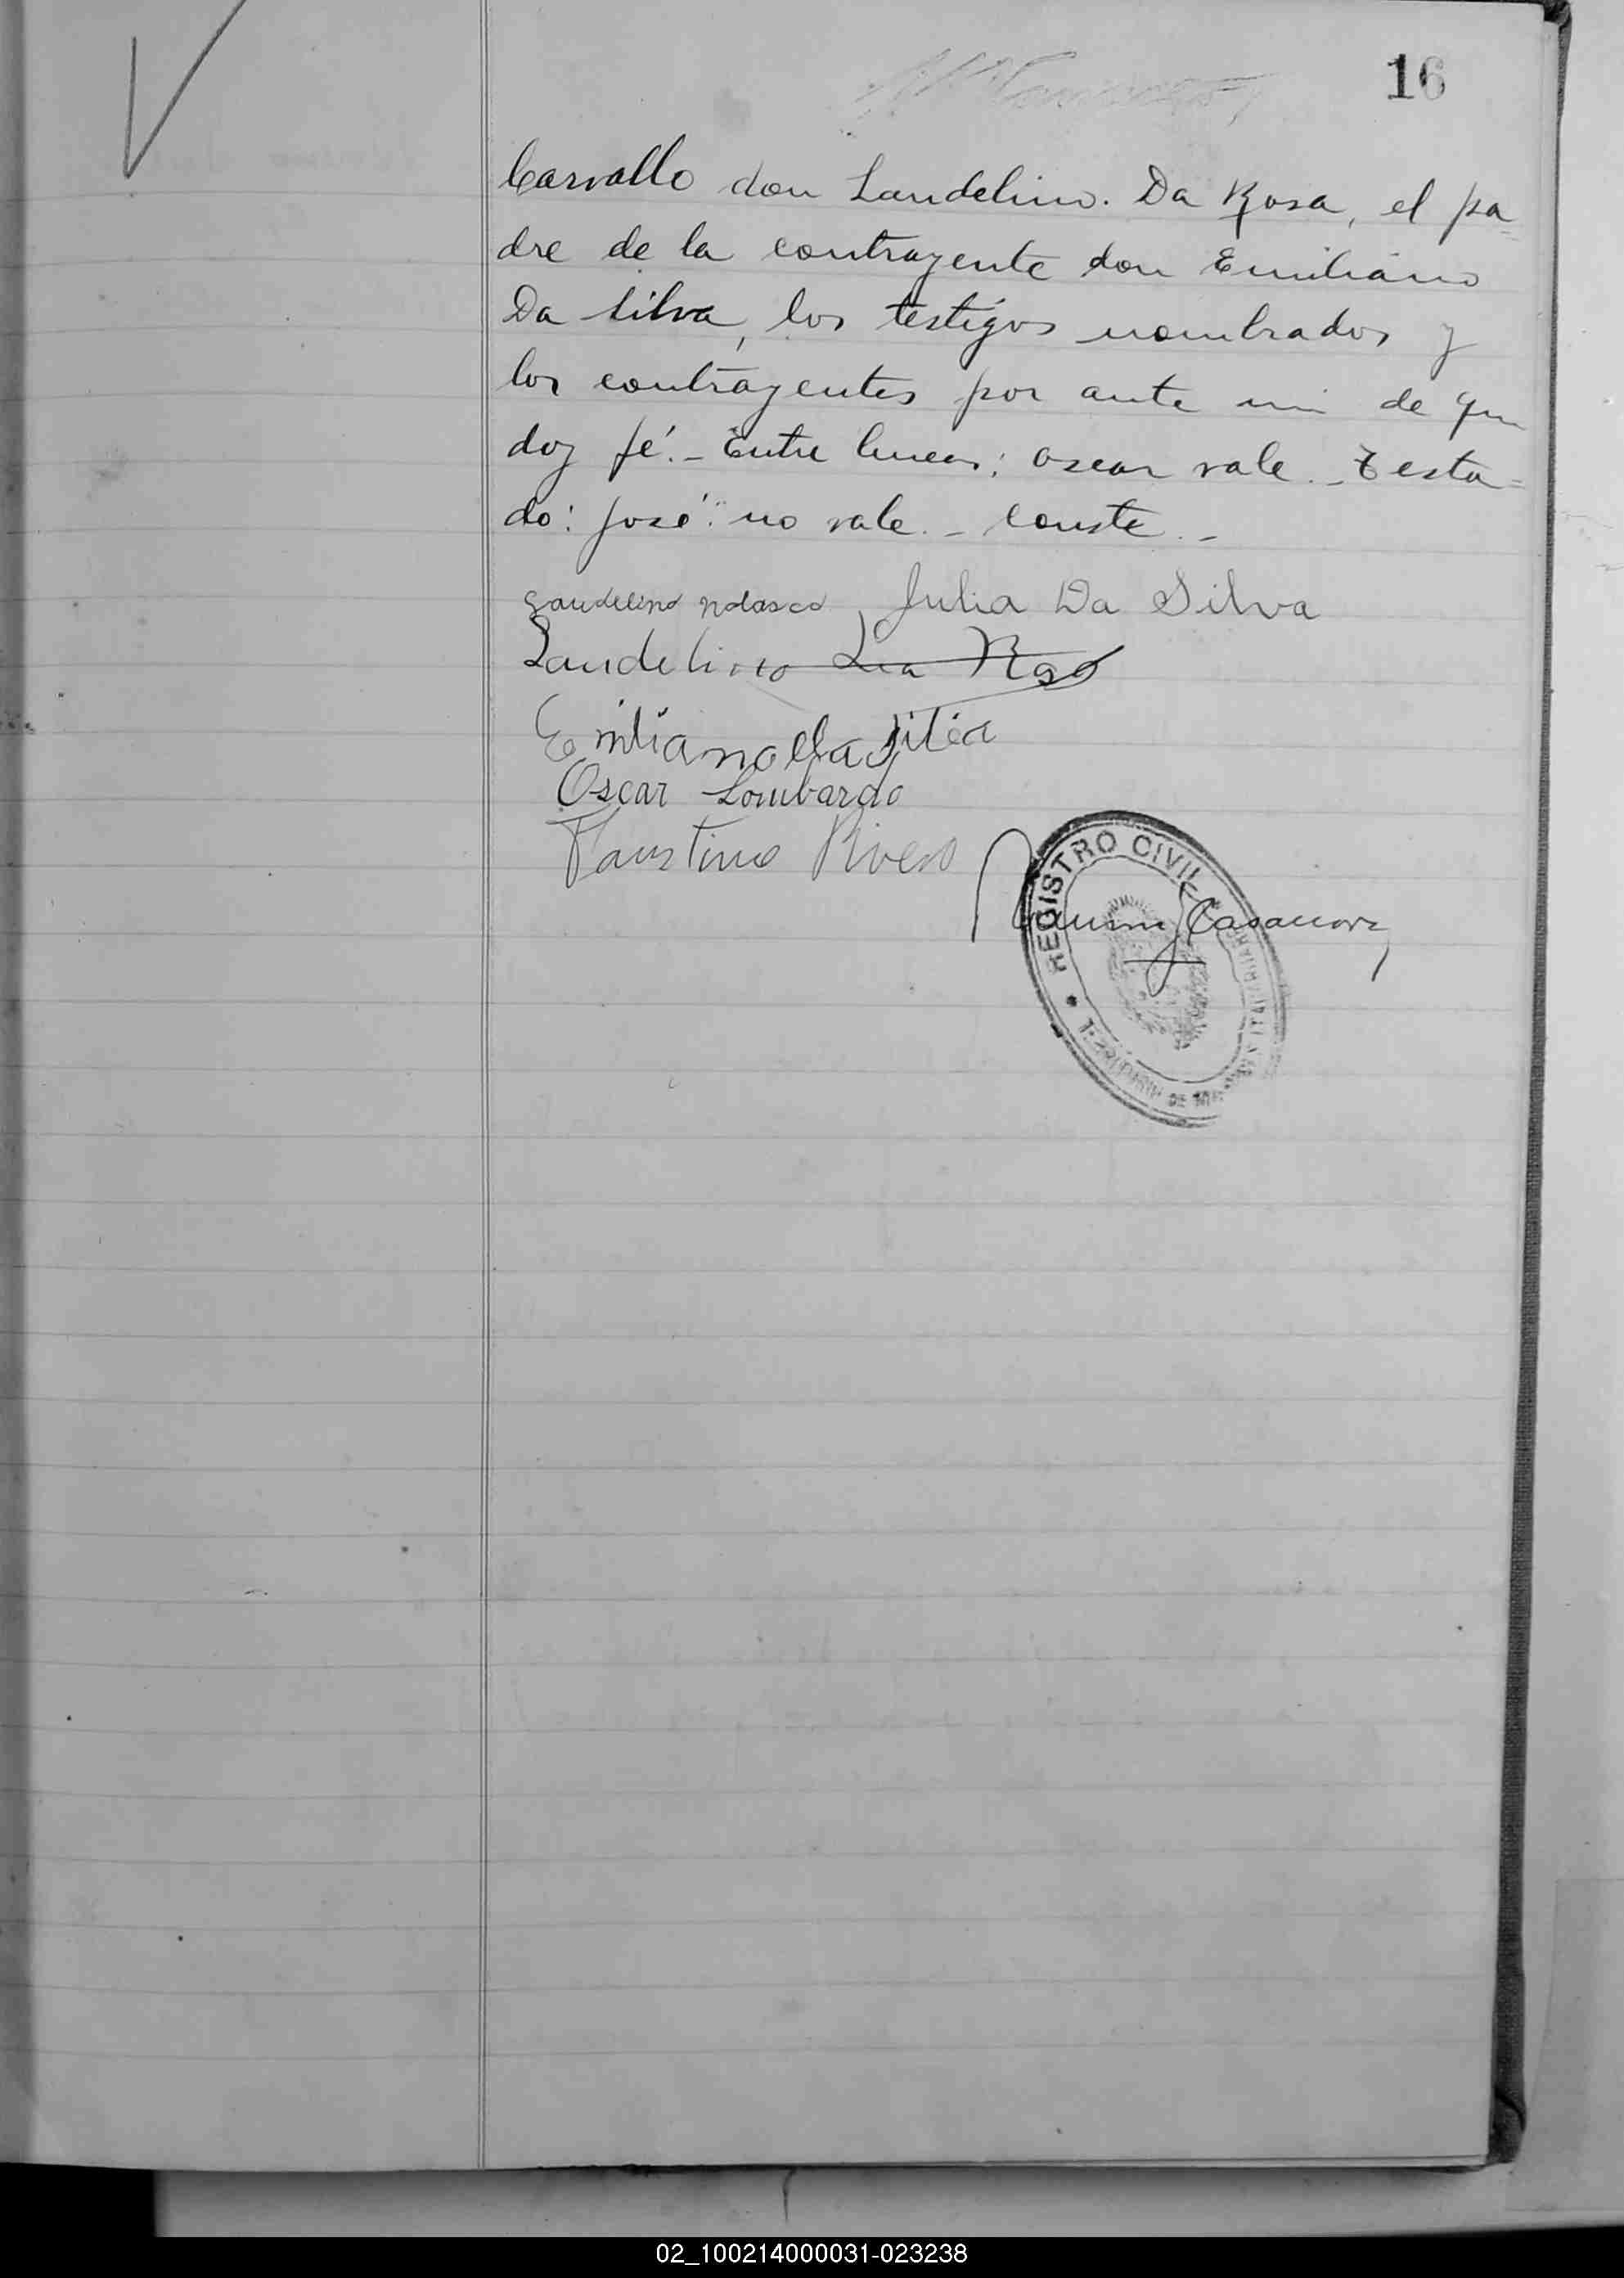 16
Carvallo don Landelino. Da Rosa, el pa=
dre de la contrayente don Emiliano
Da Silva, los testigos nombrados y
los contrayentes por ante mi de que
doy fé.- Entre lineas: oscar vale.- Testa=
do: José: no vale.- Conste.-
Landelino Nolasco, Julia Da Silva
Landelino Da Rosa
Emiliano da Silva
Oscar Lombardo
Faustino Rivero
Casanova
REGISTRO CIVIL
DE
02_100214000031-023238